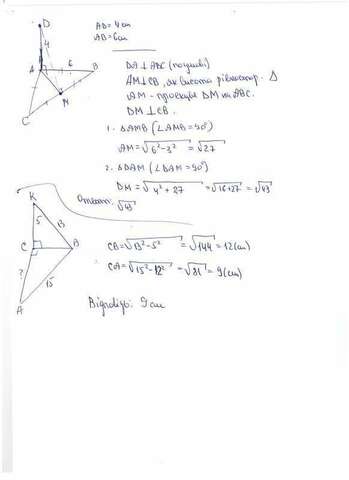 AD = 4 см
AB = 6 см
D
4
6
A
B
M
C
DA ⊥ ABC (по умові)
AM ⊥ CB, як висота рівностор. Δ
AM - проекція DM на ABC.
DM ⊥ CB.
1. ΔAMB (∠AMB = 90°)
AM = √6²-3² = √27
2. ΔDAM (∠DAM = 90°)
DM = √4² + 27 = √16+27 = √43
√43
K
5
13
C
B
?
15
A
CB = √13²-5² = √144 = 12 (см)
CA = √15²-12² = √81 = 9 (см)
Відповідь: 9 см